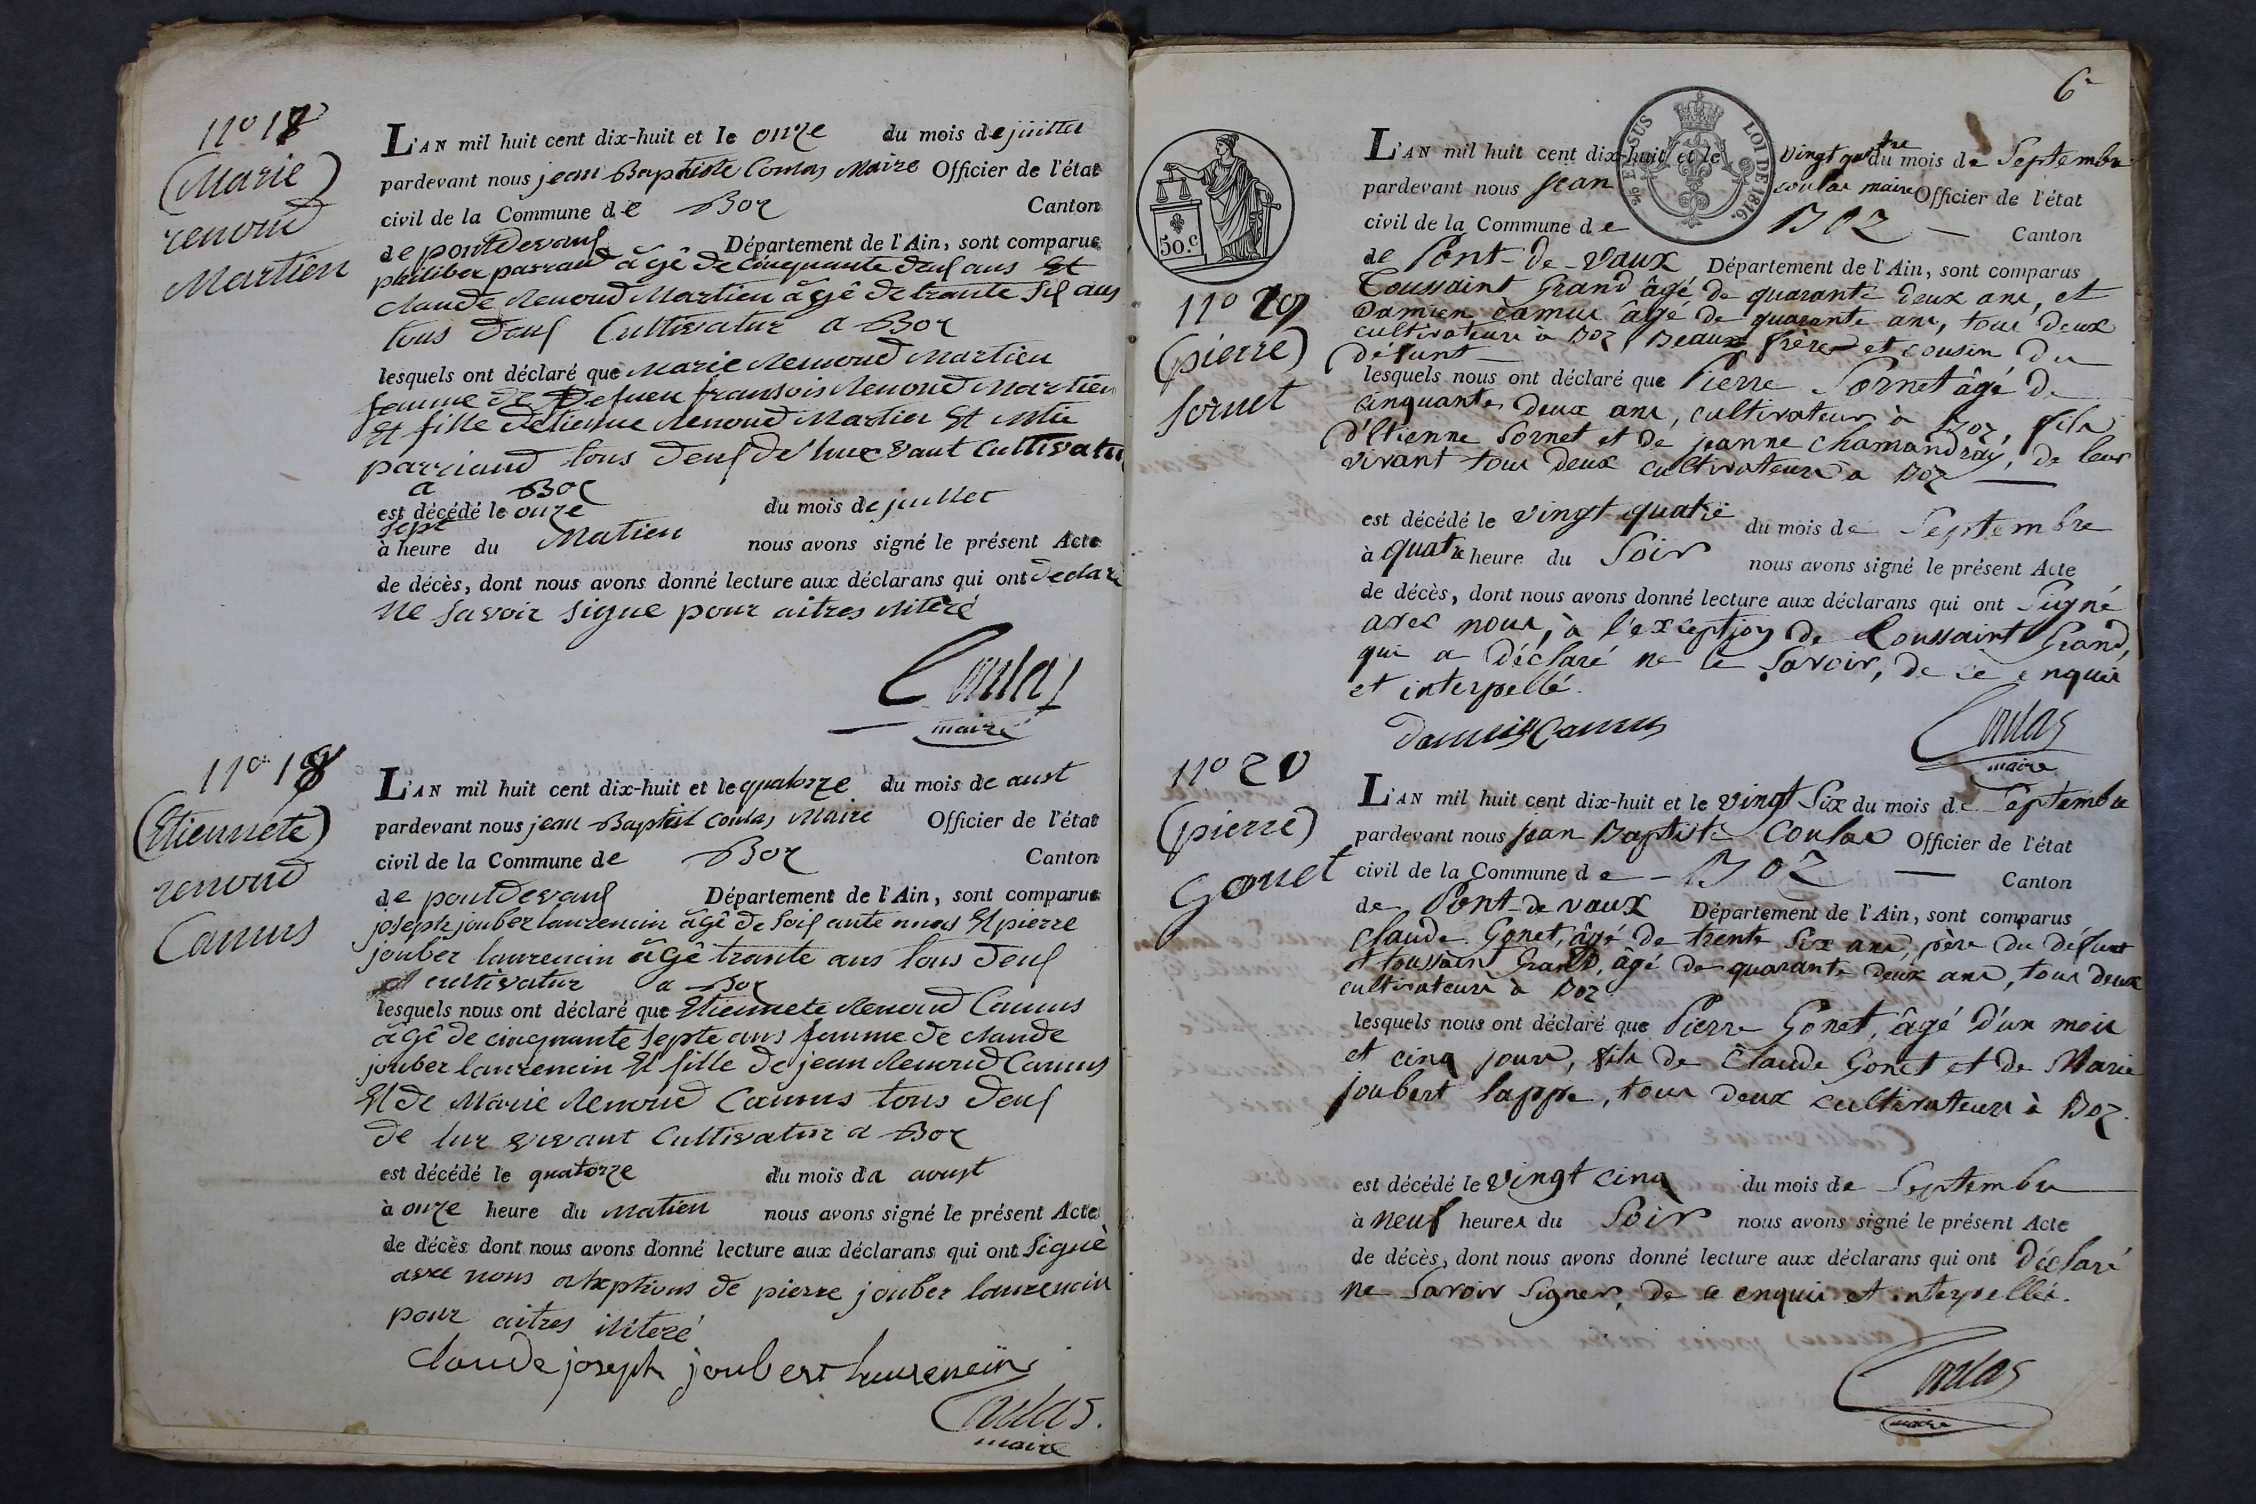 n° 18
(Marie)
renoud
Martien
L'AN mil huit cent dix-huit et le onze du mois de juillet
pardevant nous jean Baptiste Coulas Maire Officier de l'état
civil de la Commune de Boz Canton
de pontdevaux Département de l'Ain, sont comparus
philiber parraud âgê de cinquante deux ans Et
claude Renoud Martien âgê de trante six ans
tous deux Cultivatur a Boz
lesquels ont déclaré que Marie Renoud Martien
femme de Defuen fransois Renoud Martien
Et fille detienne Renoud Martien Et
parriaud tous deux de vaut Cultivatur
a Boz
est décédé le onze du mois de juillet
sept
à heure du Matien nous avons signé le présent Acte
de décès, dont nous avons donné lecture aux déclarans qui ont declaré
ne savoir signe pour aitres iliteré
Coulas
maire
n° 18
(Etiennete)
renoud
Camus
L'AN mil huit cent dix-huit et le quatorze du mois de aust
pardevant nous jean Baptist Coulas Maire Officier de l'état
civil de la Commune de Boz Canton
de pontdevaux Département de l'Ain, sont comparus
joseph jouber laurencin âgê de soix ante Et pierre
jouber laurencin âgê trante ans tous deux
cultivatur a Boz
lesquels nous ont déclaré que Etiennete Renoud Camus
âgê de cinquante septe ans femme de claude
jouber laurencin Et fille de jean Renoud Camus
Et de Marie Renoud Camus tous deux
de lur vivant Cultivatur a Boz
est décédé le quatorze du mois da aoust
à onze heure du Matien nous avons signé le présent Acte
de décès dont nous avons donné lecture aux déclarans qui ont signè
avec nous de pierre jouber laurencin
pour aitres iliteré
Claude joseph joubert laurencin
Coulas.
maire
6e
ESSUS
LOI DE 1816.
50.c
n° 19
(pierre)
sornet
L'AN mil huit cent dix-huit et le vingt quatre du mois de Septembre
pardevant nous jean coulas maire Officier de l'état
civil de la Commune de Boz Canton
de Pont-de-vaux Département de l'Ain, sont comparus
Toussaint Grand âgé de quarante deux ans, et
Damien Camus âgé de quarante ans, tous deux
cultivateurs à Boz Beaux frère et cousin du
défunt
lesquels nous ont déclaré que Pierre Sornet âgé de
cinquante deux ans, cultivateur à Boz, fils
d'Etienne Sornet et de jeanne chamandray, de leur
vivant tous deux cultivateurs à Boz
est décédé le vingt quatre du mois de Septembre
à quatre heure du Soir nous avons signé le présent Acte
de décès, dont nous avons donné lecture aux déclarans qui ont Signé
avec nous, à l'exception de Toussaint Grand,
qui a déclaré ne le Savoir, de ce enquis
et interpellé.
Damien Camus
Coulas
maire
n° 20
(pierre)
Gonet
L'AN mil huit cent dix-huit et le vingt Six du mois de Septembre
pardevant nous jean Baptiste Coulas Officier de l'état
civil de la Commune de Boz Canton
de Pont-de vaux Département de l'Ain, sont comparus
claude Gonet, âgé de trente Six ans, père du défunt
et toussaint Grand, âgé de quarante deux ans, tous deux
cultivateurs à Boz
lesquels nous ont déclaré que Pierre Gonet, âgé d'un mois
et cinq jours, fils de Claude Gonet et de Marie
joubert lappe, tous deux cultivateurs à Boz.
est décédé le vingt cinq du mois de Septembre
à neuf heures du Soir nous avons signé le présent Acte
de décès, dont nous avons donné lecture aux déclarans qui ont déclaré
ne Savoir Signer, de ce enquis et interpellés.
Coulas
maire